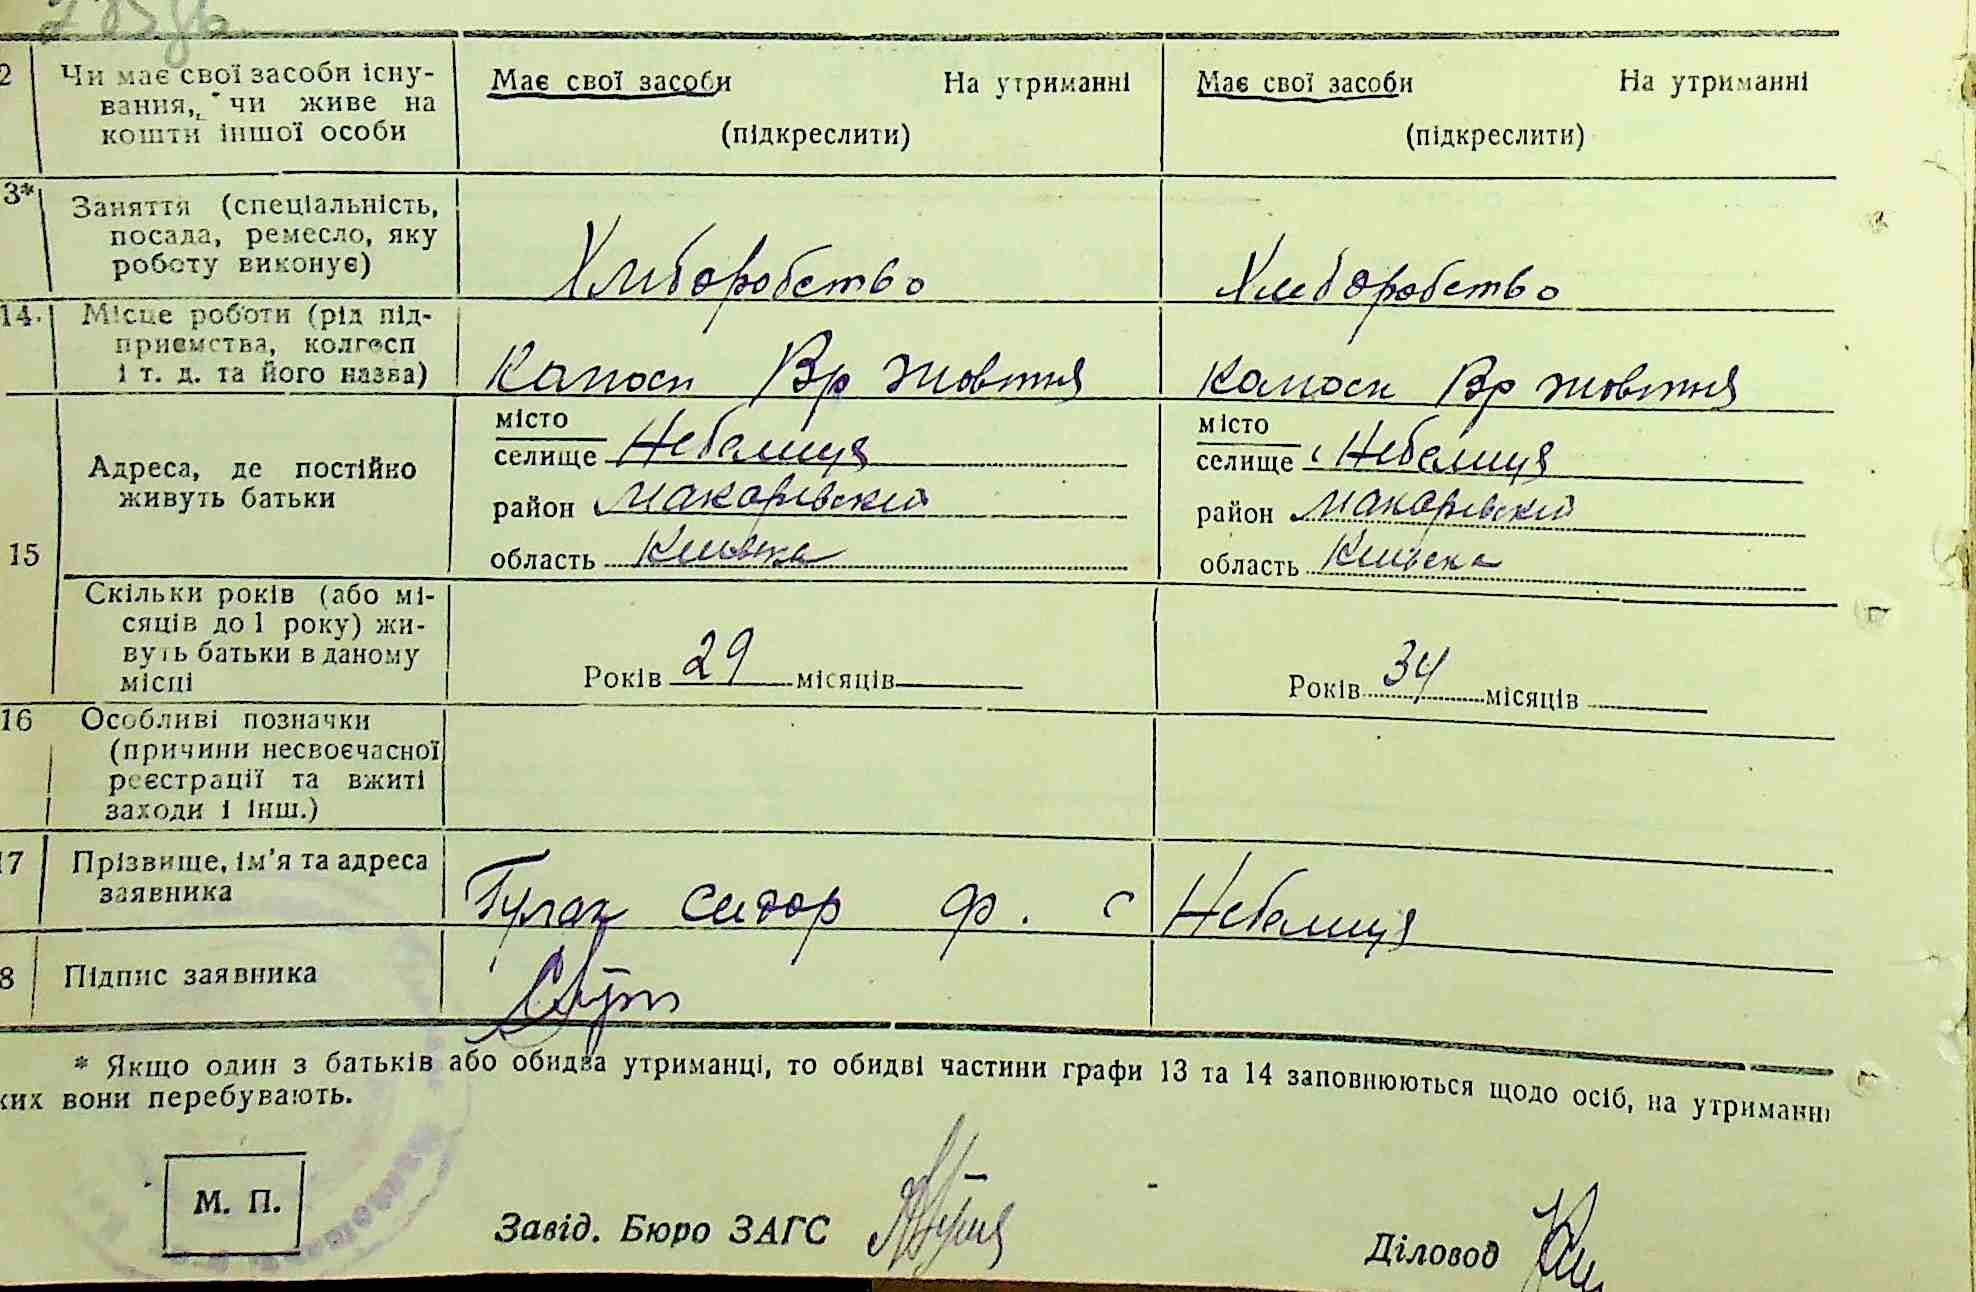 2 Чи має свої засоби існу- Має свої засоби На утриманні Має свої засоби На утриманні
вання, чи живе на
кошти іншої особи (підкреслити) (підкреслити)
3* Заняття (спеціальність,
посада, ремесло, яку
роботу виконує) Хліборобство Хліборобство
14. Місце роботи (рід під-
приємства, колгосп
і т. д. та його назва) Вр жовтня Вр жовтня
місто місто
Адреса, де постійно селище Небелиця селище Небелиця
живуть батьки район Макарівский район Макарівский
15 область Київска область Київска
Скільки років (або мі-
сяців до 1 року) жи-
вуть батьки в даному
місці Років 29 місяців Років 34 місяців
16 Особливі позначки
(причини несвоєчасної
реєстрації та вжиті
заходи і інш.)
17 Прізвище, ім'я та адреса
заявника Гулак Сидор Ф. с Небелиця
8 Підпис заявника
* Якщо один з батьків або обидва утриманці, то обидві частини графи 13 та 14 заповнюються щодо осіб, на утриманні
ких вони перебувають.
М. П.
Завід. Бюро ЗАГС Діловод